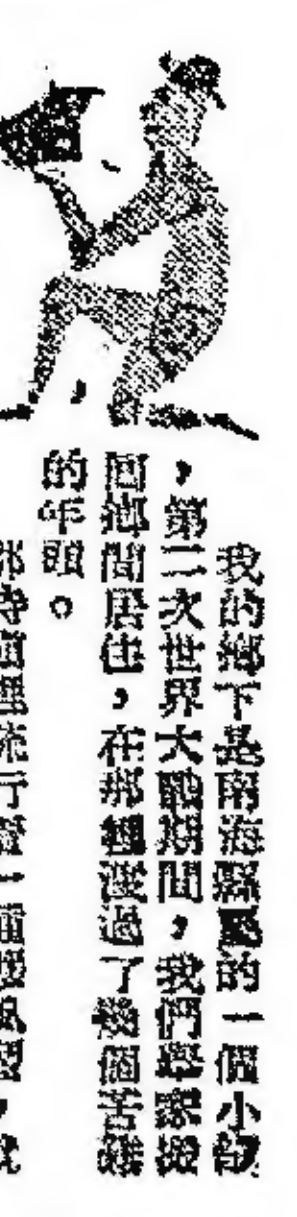 我的鄉下是南海縣屬的一個小鎮
，第二次世界大戰期間，我們舉家搬
回鄉間居住，在那裡渡過了幾個苦難
的年頭。
那時這裡流行着一種